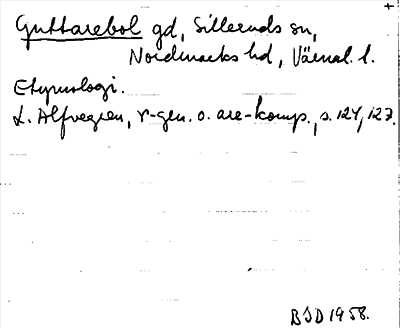 Guttarebol gd, Silleruds sn,
Nordmarks hd, Värml. l.
Etymologi.
L. Alfvegren, r-gen. o. are-komp., s. 124, 127.
BSD 1958.